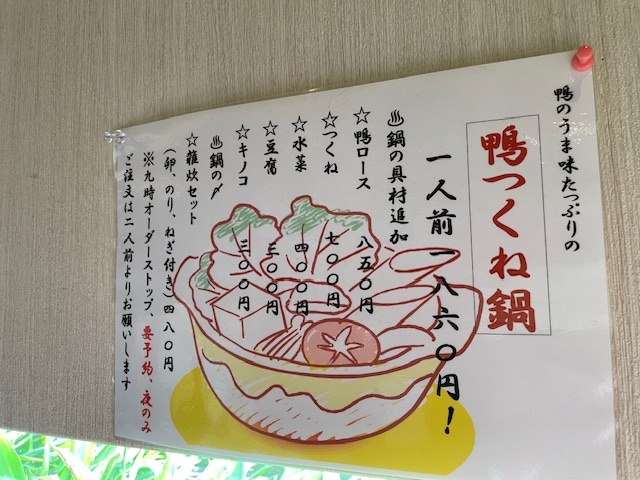 鴨のうま味たっぷりの
鴨つくね鍋
一人前一八六〇円！
♨鍋の具材追加
☆鴨ロース 八五〇円
☆つくね 七〇〇円
☆水菜 四〇〇円
☆豆腐 三〇〇円
☆キノコ 三〇〇円
♨鍋の〆
☆雑炊セット
（卵、のり、ねぎ付き）四八〇円
※九時オーダーストップ、要予約、夜のみ
ご注文は二人前よりお願いします